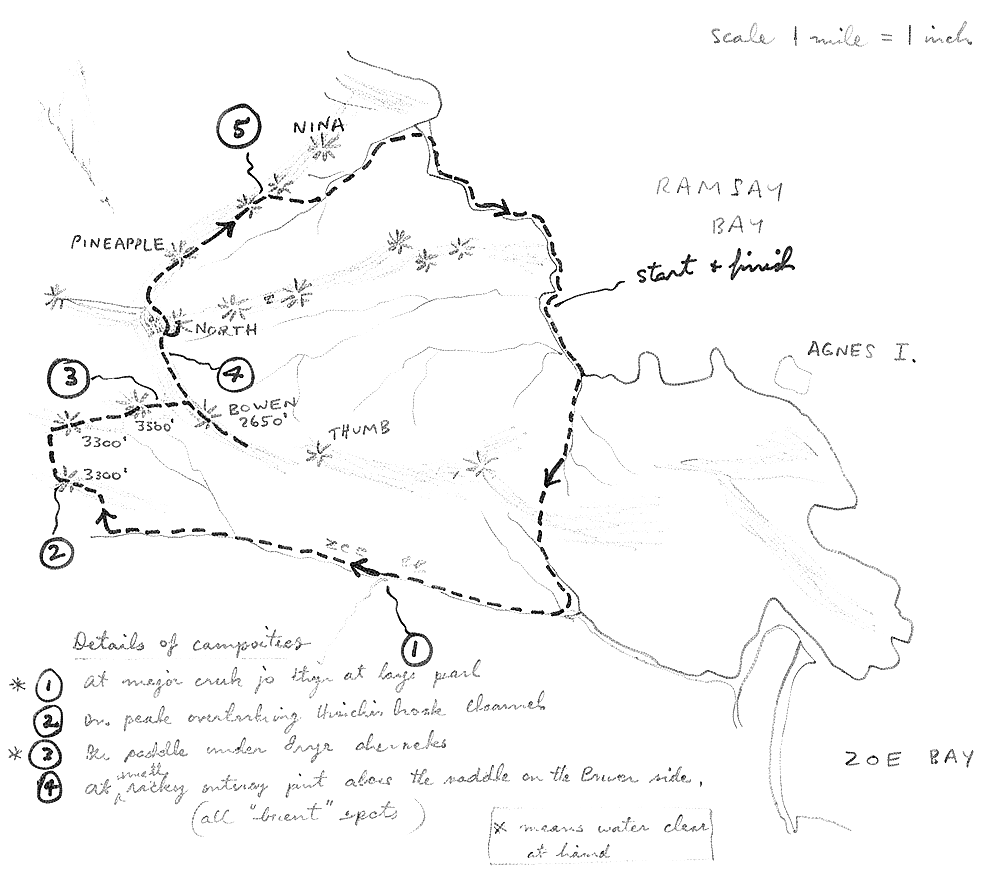 scale 1 mile = 1 inch
5
NINA
RAMSAY
BAY
PINEAPPLE
start + finish
NORTH
AGNES I.
3
4
BOWEN
2650'
3300'
3300'
THUMB
3300'
2
1
Details of campsites
* 1 at major creek at large
2 on peak overlooking Hinchinbrook Channel
* 3 In saddle under
4 at small rocky point above the saddle on the Bowen side.
(all "brient" spots)
ZOE BAY
* means water close
at hand